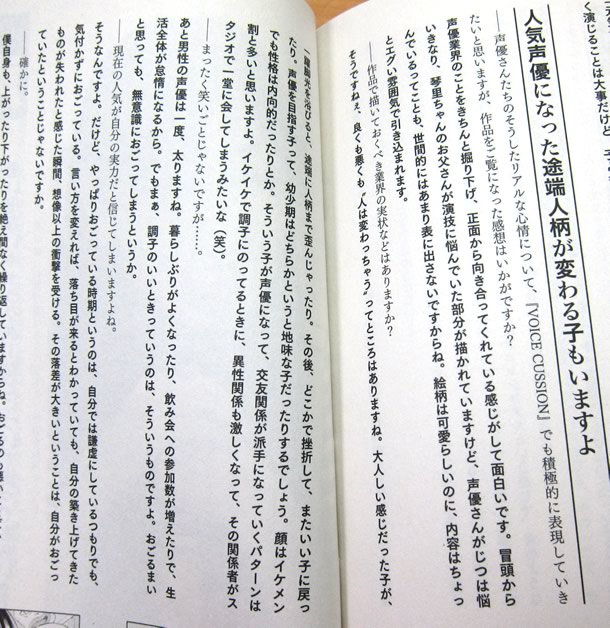 く演じることは大事だけ
人気声優になった途端人柄が変わる子もいますよ
――声優さんたちのそうしたリアルな心情について、『VOICE CUSSION』でも積極的に表現していき
たいと思いますが、作品をご覧になった感想はいかがですか？
声優業界のことをきちんと掘り下げ、正面から向き合ってくれている感じがして面白いです。冒頭から
いきなり、琴里ちゃんのお父さんが演技に悩んでいた部分が描かれていますけど、声優さんがじつは悩
んでいるってことも、世間的にはあまり表に出さないですからね。絵柄は可愛らしいのに、内容はちょっ
とエグい雰囲気で引き込まれます。
――作品で描いておくべき業界の実状などはありますか？
そうですねぇ、良くも悪くも〝人は変わっちゃう〟ってところはありますね。大人しい感じだった子が、
一躍脚光を浴びると、途端に人柄まで歪んじゃったり。その後、どこかで挫折して、またいい子に戻っ
たり。声優を目指す子って、幼少期はどちらかというと地味な子だったりするでしょう。顔はイケメン
でも性格は内向的だったりとか。そういう子が声優になって、交友関係が派手になっていくパターンは
割と多いと思いますよ。イケイケで調子にのってるときに、異性関係も激しくなって、その関係者がス
タジオで一堂に会してしまうみたいな（笑）。
――まったく笑いごとじゃないですが……。
あと男性の声優は一度、太りますね。暮らしぶりがよくなったり、飲み会への参加数が増えたりで、生
活全体が怠惰になるから。でもまぁ、調子のいいときっていうのは、そういうものですよ。おごるまい
と思っても、無意識におごってしまうというか。
――現在の人気が自分の実力だと信じてしまいますよね。
そうなんですよ。だけど、やっぱりおごっている時期というのは、自分では謙虚にしているつもりでも、
気付かずにおごっている。言い方を変えれば、落ち目が来るとわかっていても、自分の築き上げてきた
ものが失われたと感じた瞬間、想像以上の衝撃を受ける。その落差が大きいということは、自分がおごっ
ていたということじゃないですか。
――確かに。
僕自身も、上がったり下がったりを絶え間なく繰り返していますからね。おごるのも悪いことじゃ